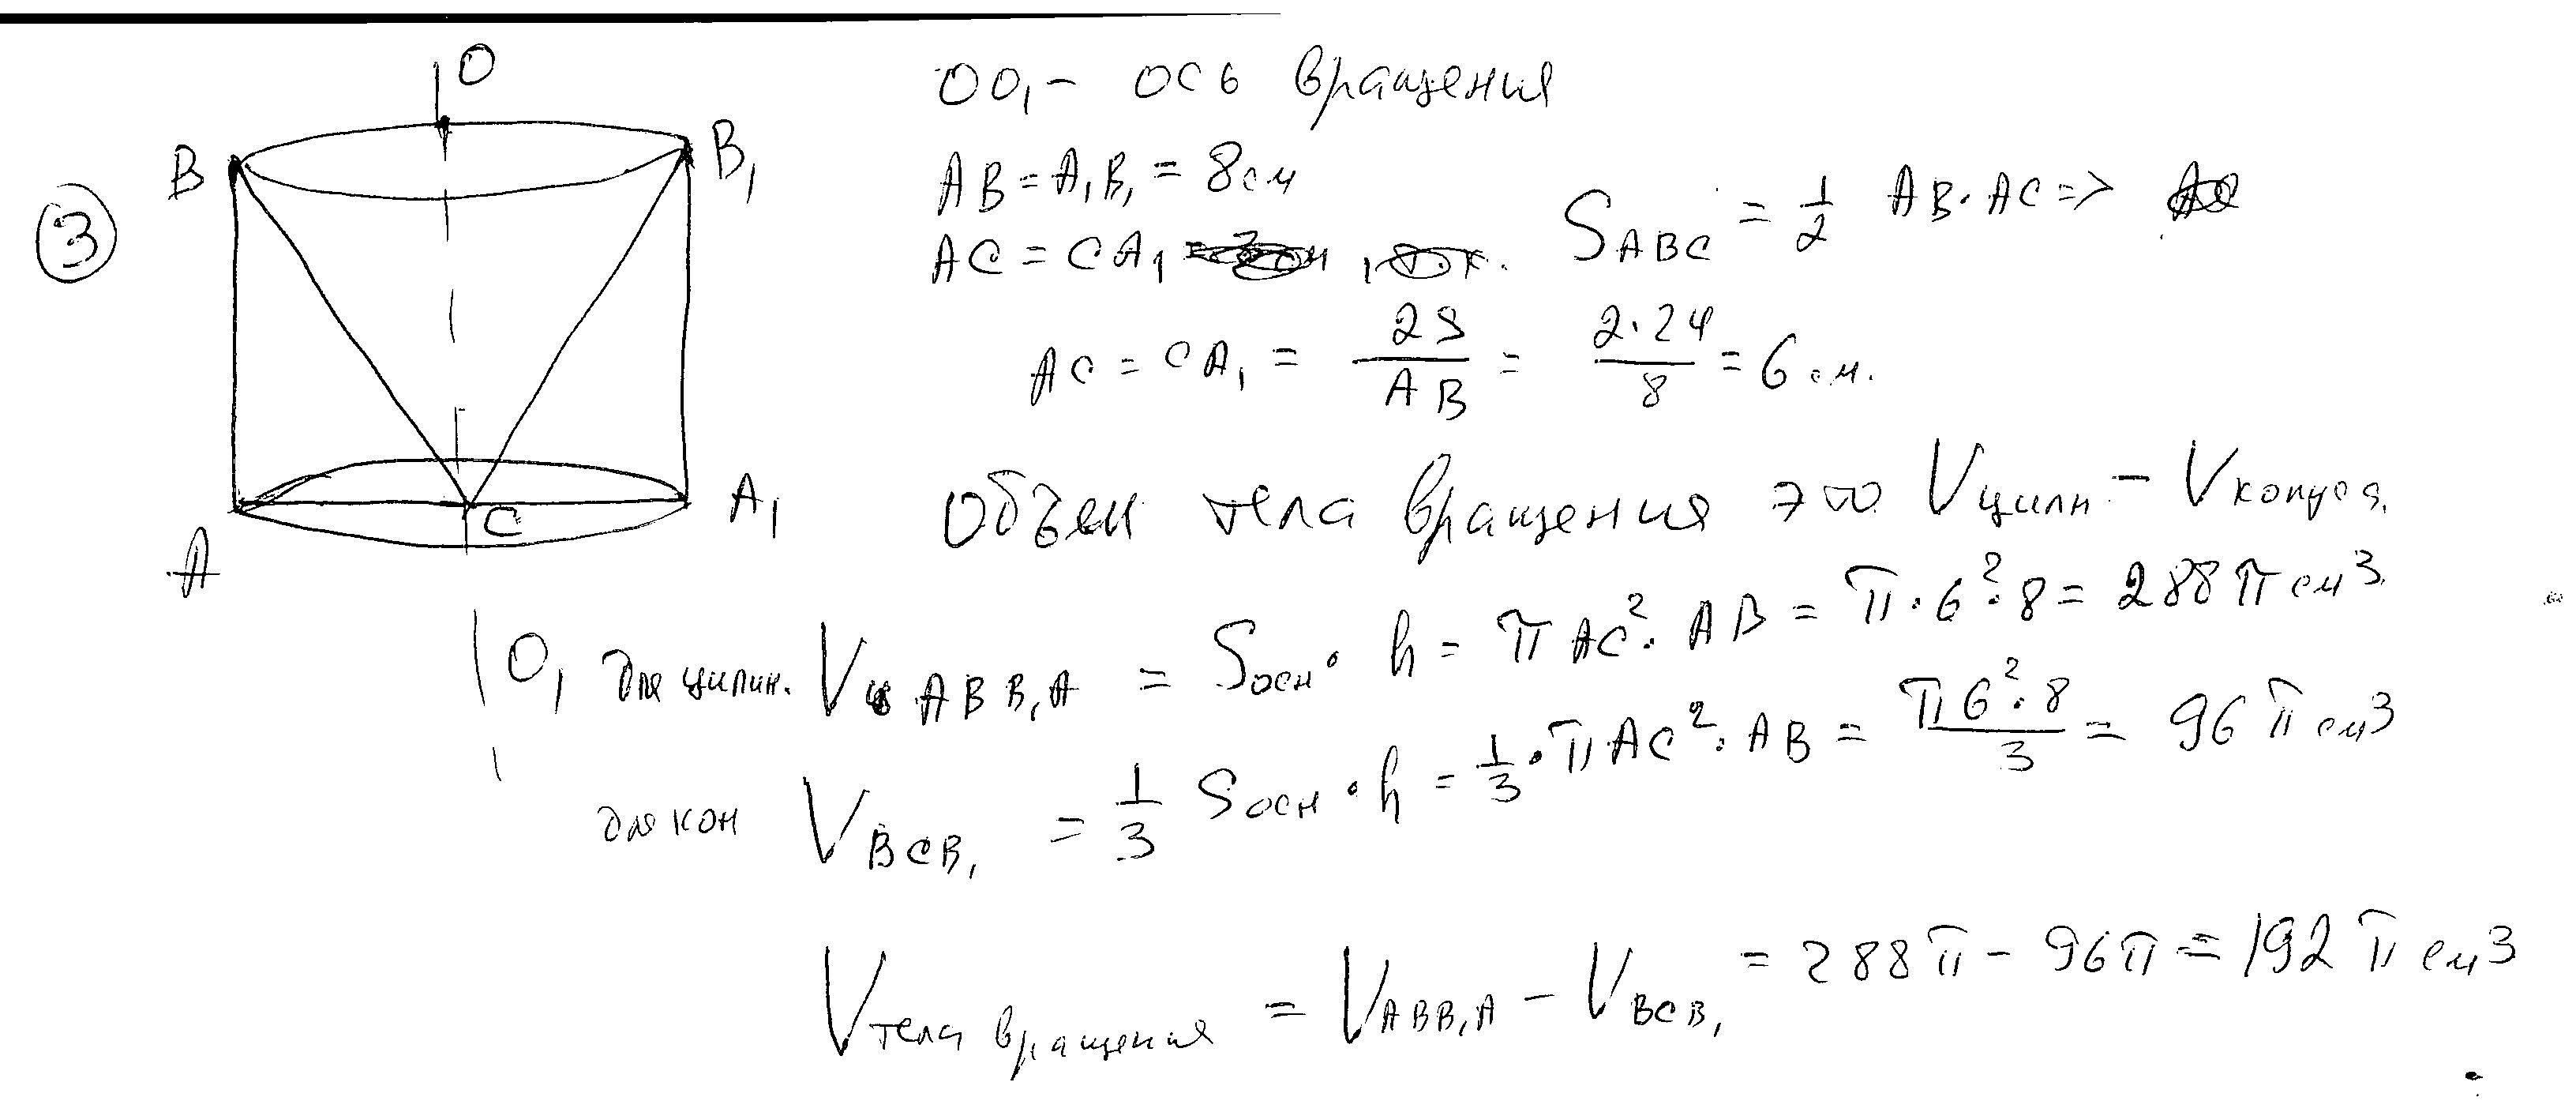 O
OO₁ – ось вращения
B
B₁
AB = A₁B₁ = 8 см
③
AC = CA₁
S_ABC = 1/2 AB · AC =>
AC = CA₁ = 2S/AB = 2·24/8 = 6 см.
A
C
A₁
Объем тела вращения это Vцилн – Vконуся.
O₁
для цилин. Vц ABB₁A = Sосн · h = π AC² · AB = π · 6² · 8 = 288π см³
для кон V_BCB₁ = 1/3 Sосн · h = 1/3 · π AC² · AB = π6²·8/3 = 96π см³
Vтела вращения = V_ABB₁A – V_BCB₁ = 288π – 96π = 192π см³